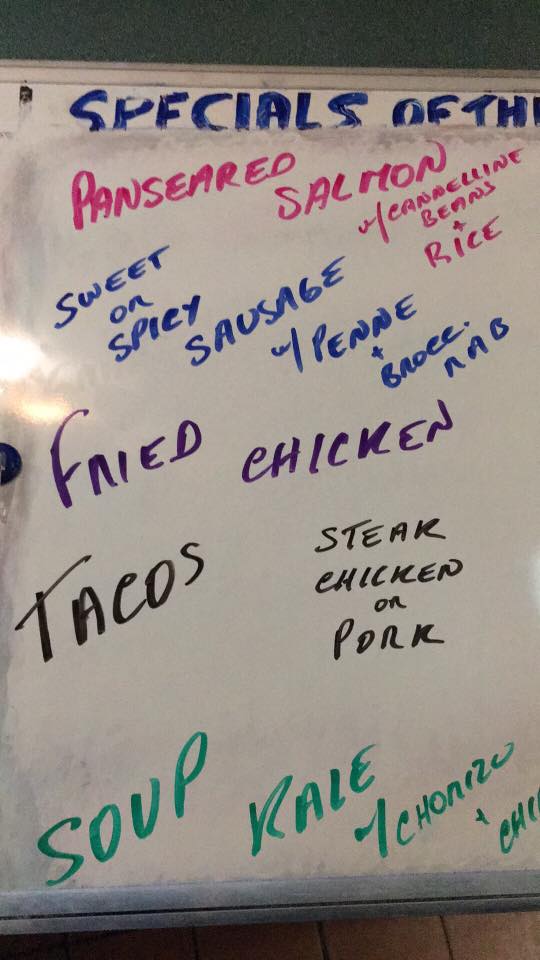 SPECIALS OF THE
PANSEARED SALMON
w/ CANNELLINE
BEANS
+
RICE
SWEET
OR
SPICY SAUSAGE
w/ PENNE
+
BROCC.
RAB
FRIED CHICKEN
TACOS
STEAK
CHICKEN
OR
PORK
SOUP KALE
w/ CHORIZO
+
CHI